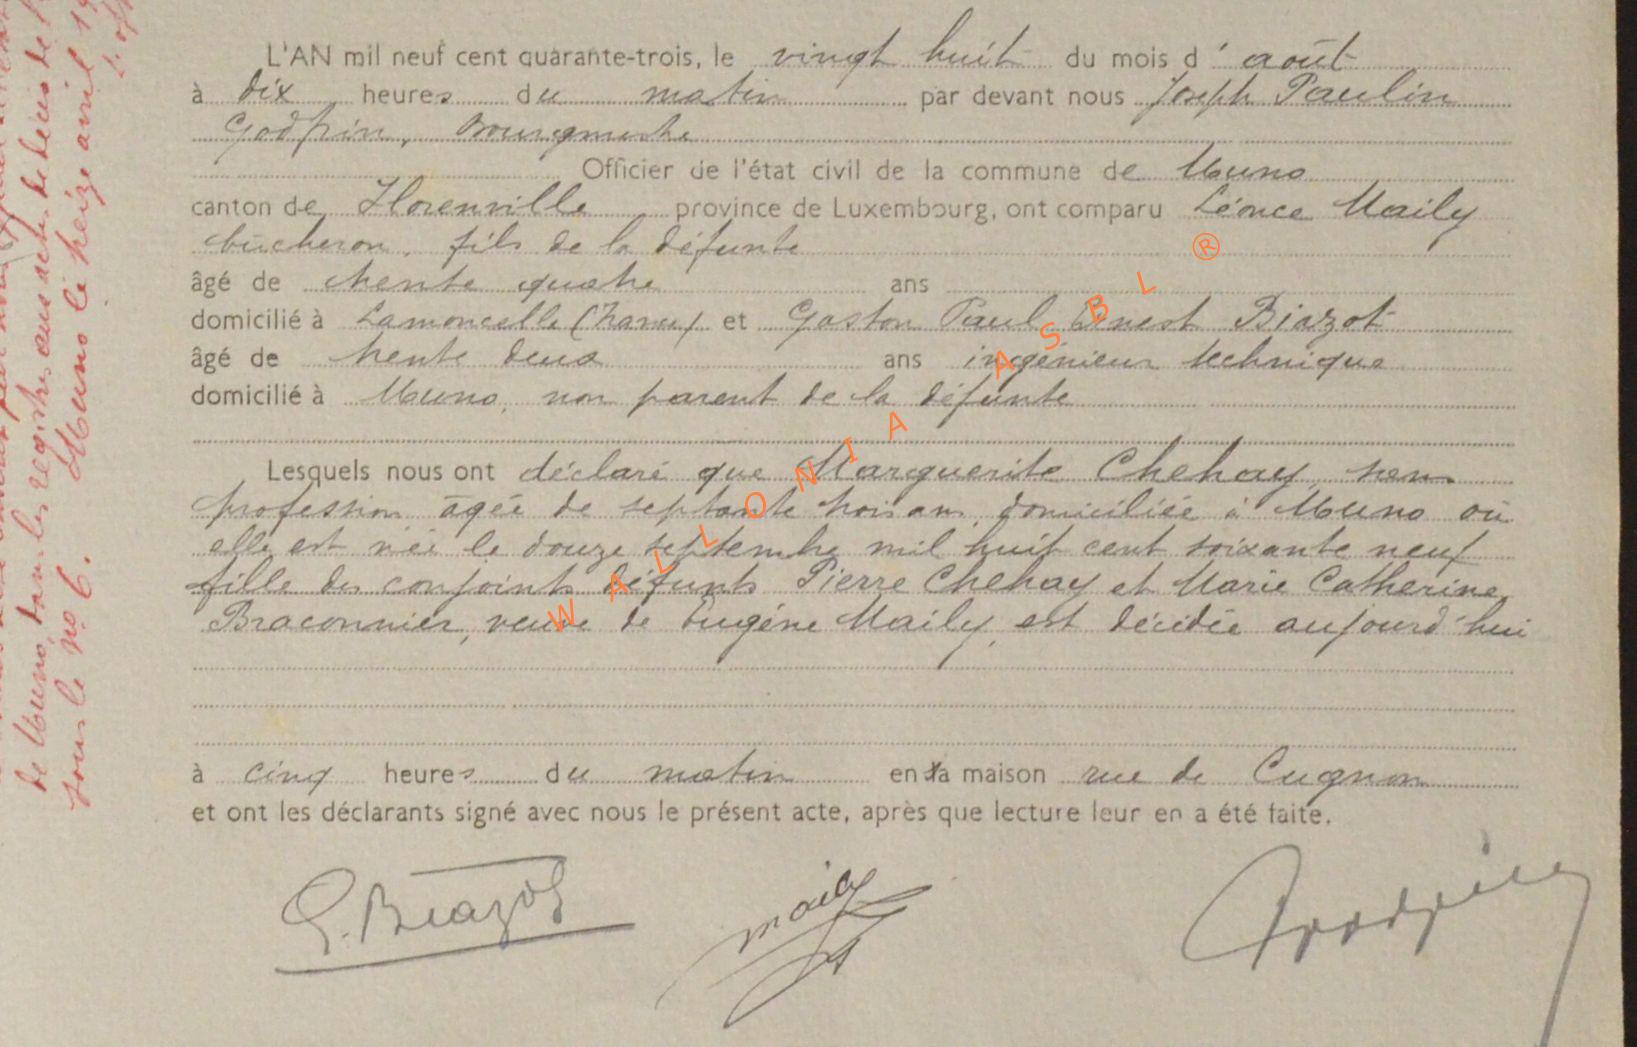 L'AN mil neuf cent quarante-trois, le vingt huit du mois d'août
à dix heures du matin par devant nous Joseph Paulin
Godfrin, Bourgmestre
Officier de l'état civil de la commune de Muno
canton de Florenville province de Luxembourg, ont comparu Léonce Maily
bûcheron, fils de la défunte
âgé de trente quatre ans
domicilié à Lamoncelle (France) et Gaston Paul Ernest Biazot
âgé de trente deux ans ingénieur technique
domicilié à Muno, non parent de la défunte
Lesquels nous ont déclaré que Marguerite Chehay, sans
profession, âgée de septante trois ans, domiciliée à Muno où
elle est née le douze septembre mil huit cent soixante neuf
fille des conjoints défunts Pierre Chehay et Marie Catherine
Braconnier, veuve de Eugène Maily, est décédée aujourd'hui
à cinq heures du matin en sa maison rue de Cugnon
et ont les déclarants signé avec nous le présent acte, après que lecture leur en a été faite.
G. Biazot
Maily
Godfrin
WALLONIA ASBL ®
de Muno dans les registres aux actes de décès de
sous le no 6. Muno le treize avril